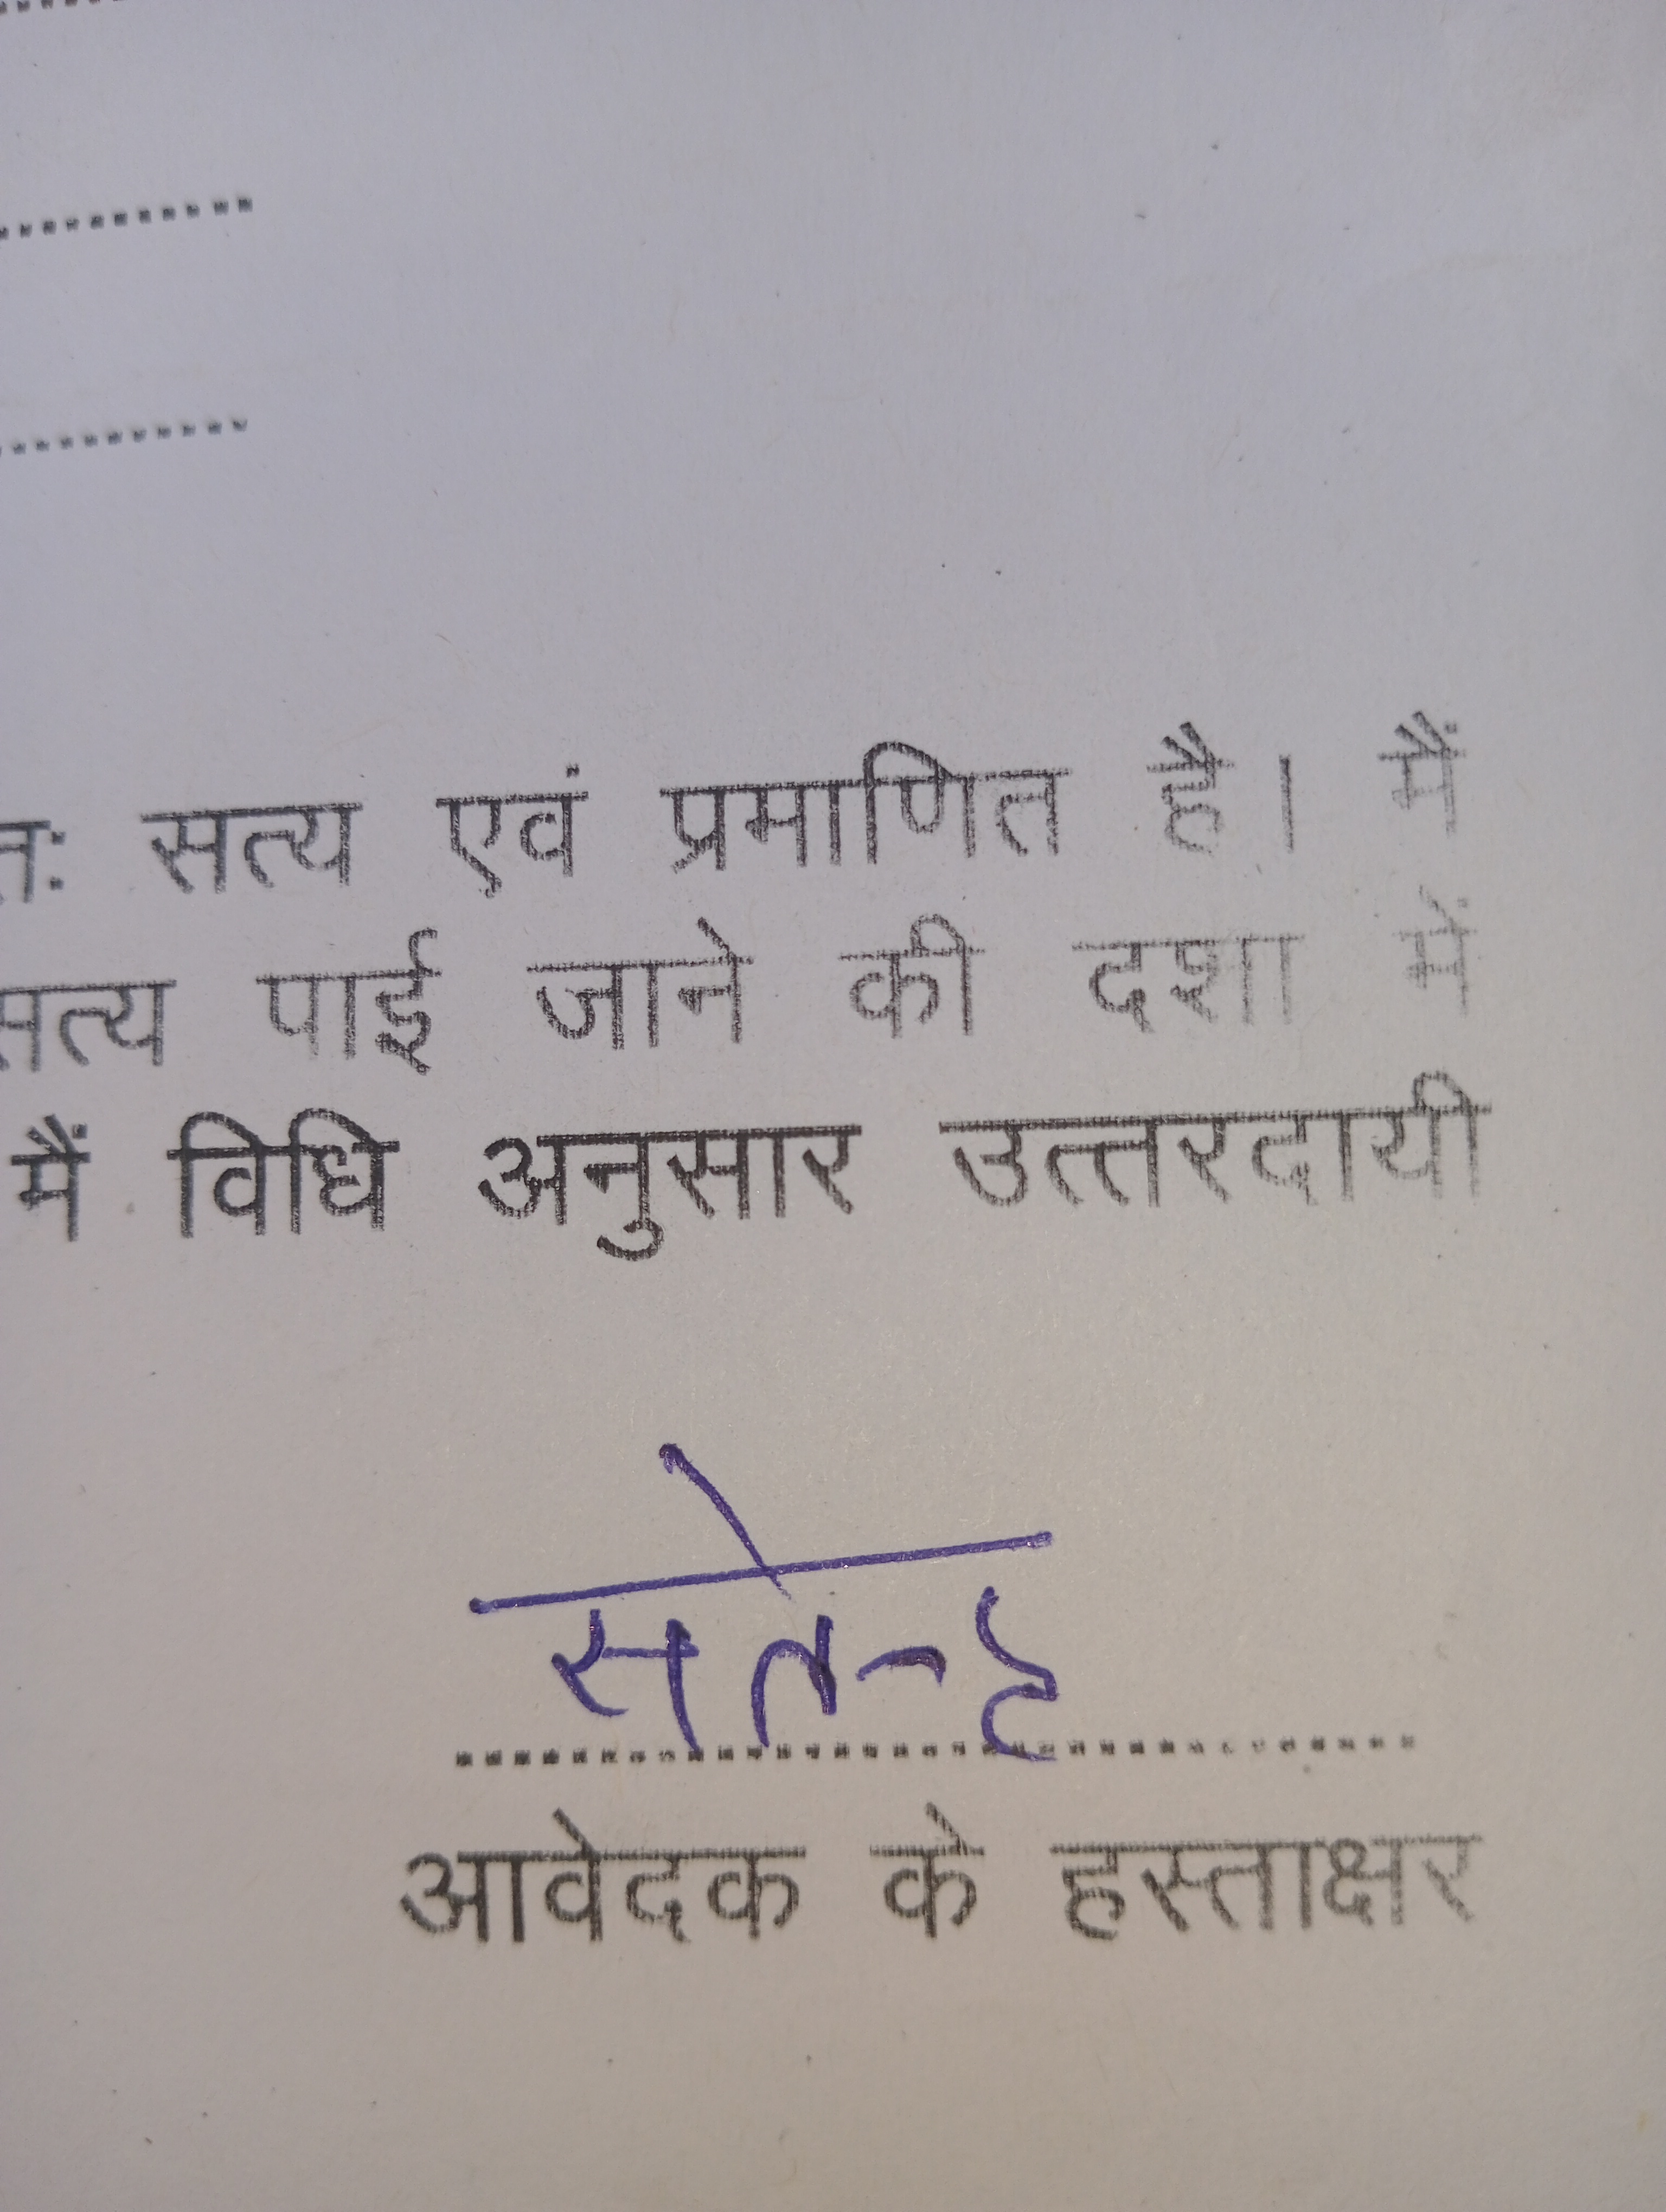 तः सत्य एवं प्रमाणित है। मैं
सत्य पाई जाने की दशा में
मैं विधि अनुसार उत्तरदायी
आवेदक के हस्ताक्षर